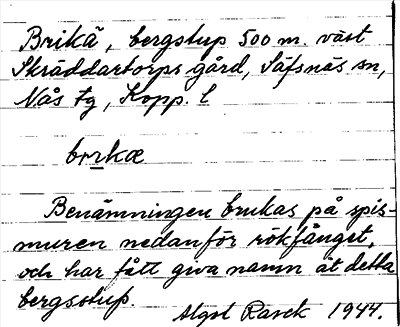 Brikä, bergstup 500 m. väst
Skräddartorps gård, Säfsnäs sn,
Nås fg, Kopp. l
brıkæ
Benämningen brukas på spis-
muren nedanför rökfånget,
och har fått giva namn åt detta
bergstup.
Algot Rasck 1944.